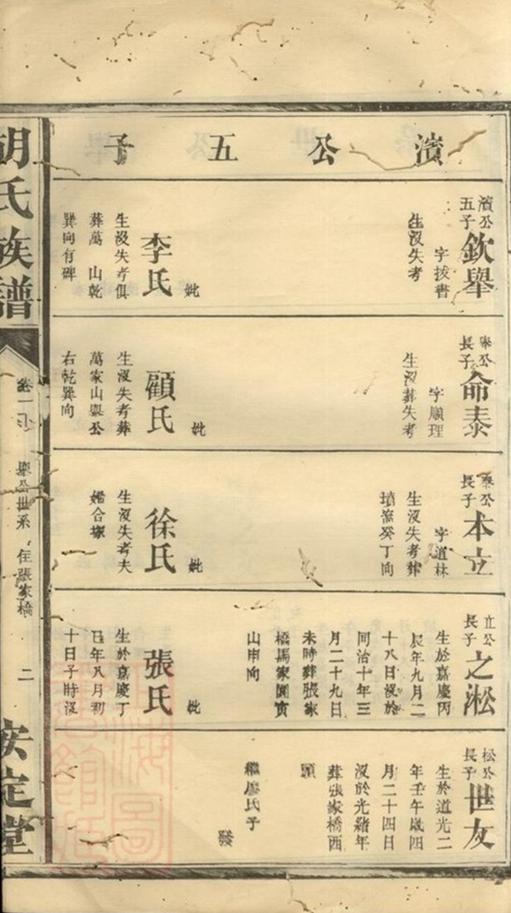 濱公五子
濱公
五子
欽舉
字拔書
生沒失考
妣
李氏
生沒失考俱
葬萬山乾
巽向有碑
舉公
長子
命泰
字順理
生沒葬失考
妣
顧氏
生沒失考葬
萬家山與公
右乾巽向
泰公
長子
本立
字道林
生沒失考葬
癸丁向
妣
徐氏
生沒失考夫
婦合塚
立公
長子
之淞
生於嘉慶丙
辰年九月二
十八日沒於
同治十年三
月二十九日
未時葬張家
橋馬家園寅
山申向
妣
張氏
生於嘉慶丁
巳年八月初
十日子時沒
淞公
長子
世友
生於道光二
年壬午歲四
月二十四日
沒於光緒年
葬張家橋西
頭
繼唐氏子
發
胡氏族譜
卷一
舉公世系
住張家橋
二
安定堂